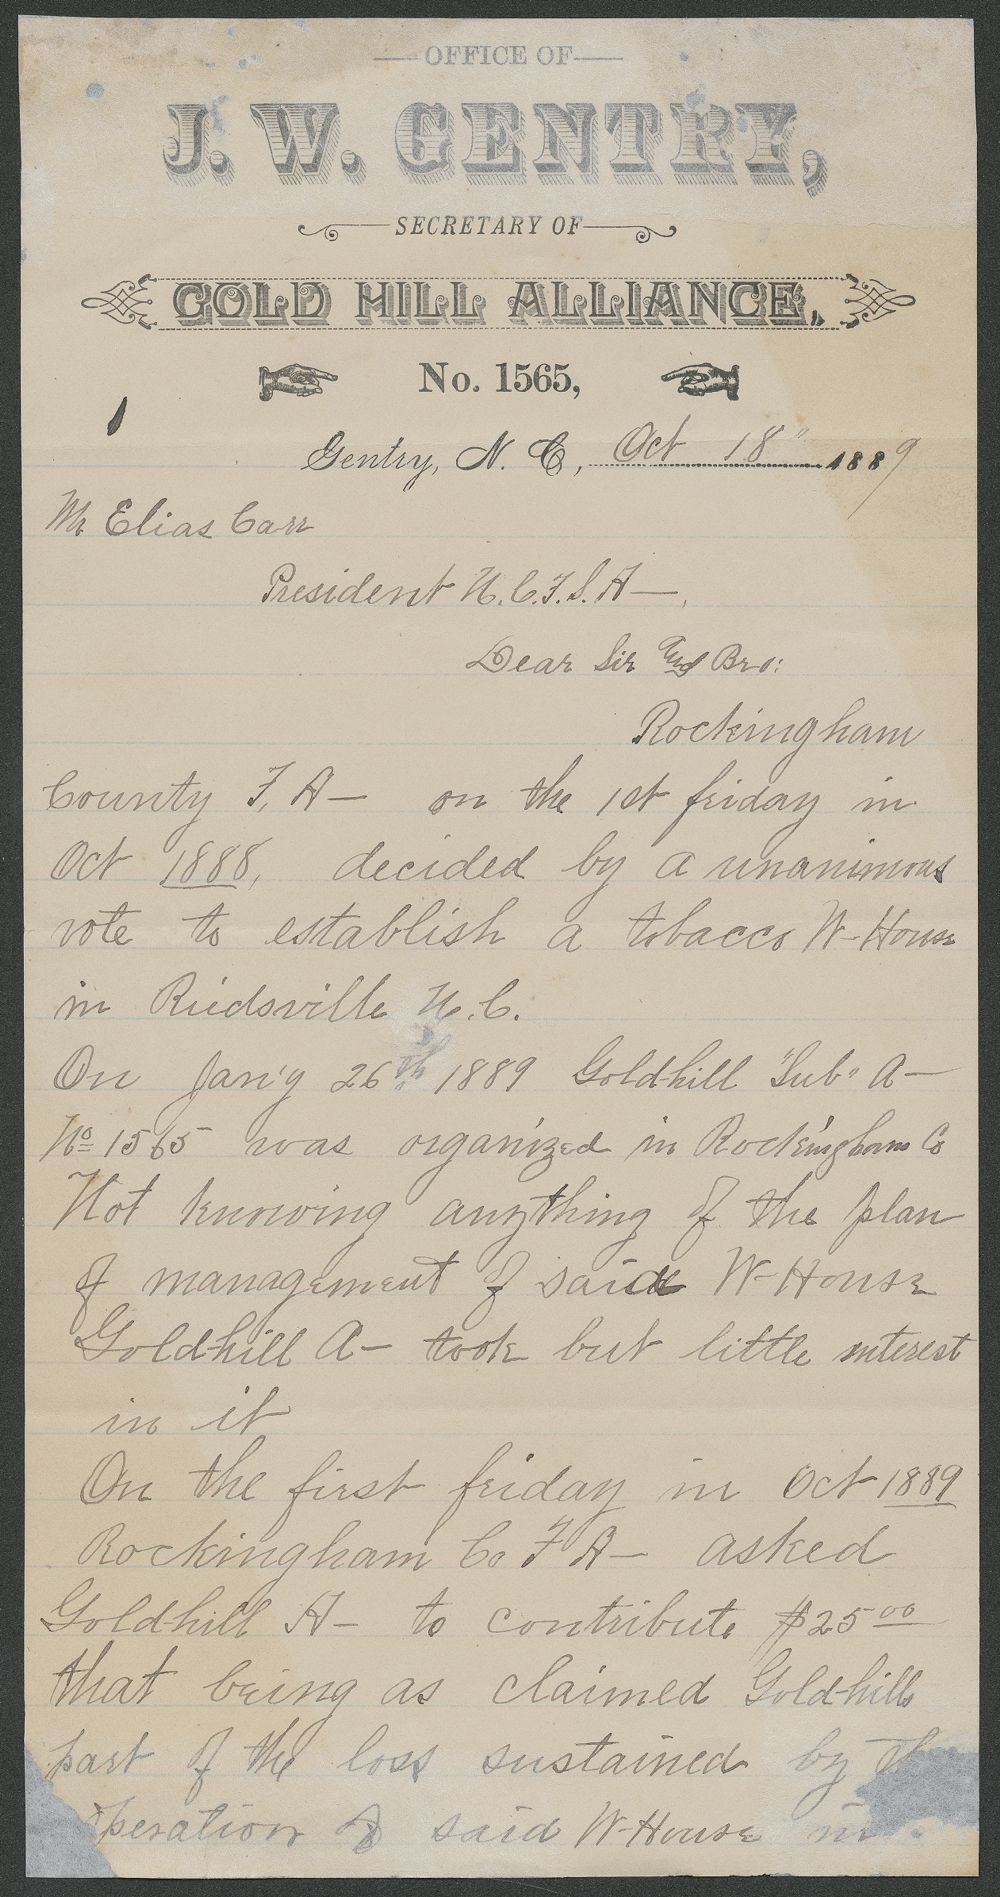 OFFICE OF
J. W. GENTRY,
SECRETARY OF
GOLD HILL ALLIANCE,
No. 1565,
Gentry, N. C., Oct 18" 1889
Mr Elias Carr
President N.C.F.S.A—
Dear Sir and Bro:
Rockingham
County F. A— on the 1st friday in
Oct 1888, decided by a unanimous
vote to establish a tobacco W-House
in Riedsville N.C.
On Jan'y 26th 1889 Goldhill "Sub" A—
No 1565 was organized in Rockingham Co
Not knowing anything of the plan
of management of said W-House
Goldhill A— took but little interest
in it
On the first friday in Oct 1889
Rockingham Co F A— asked
Goldhill A— to contribute $25 00
that being as claimed Goldhills
part of the loss sustained by
operation of said W-House in